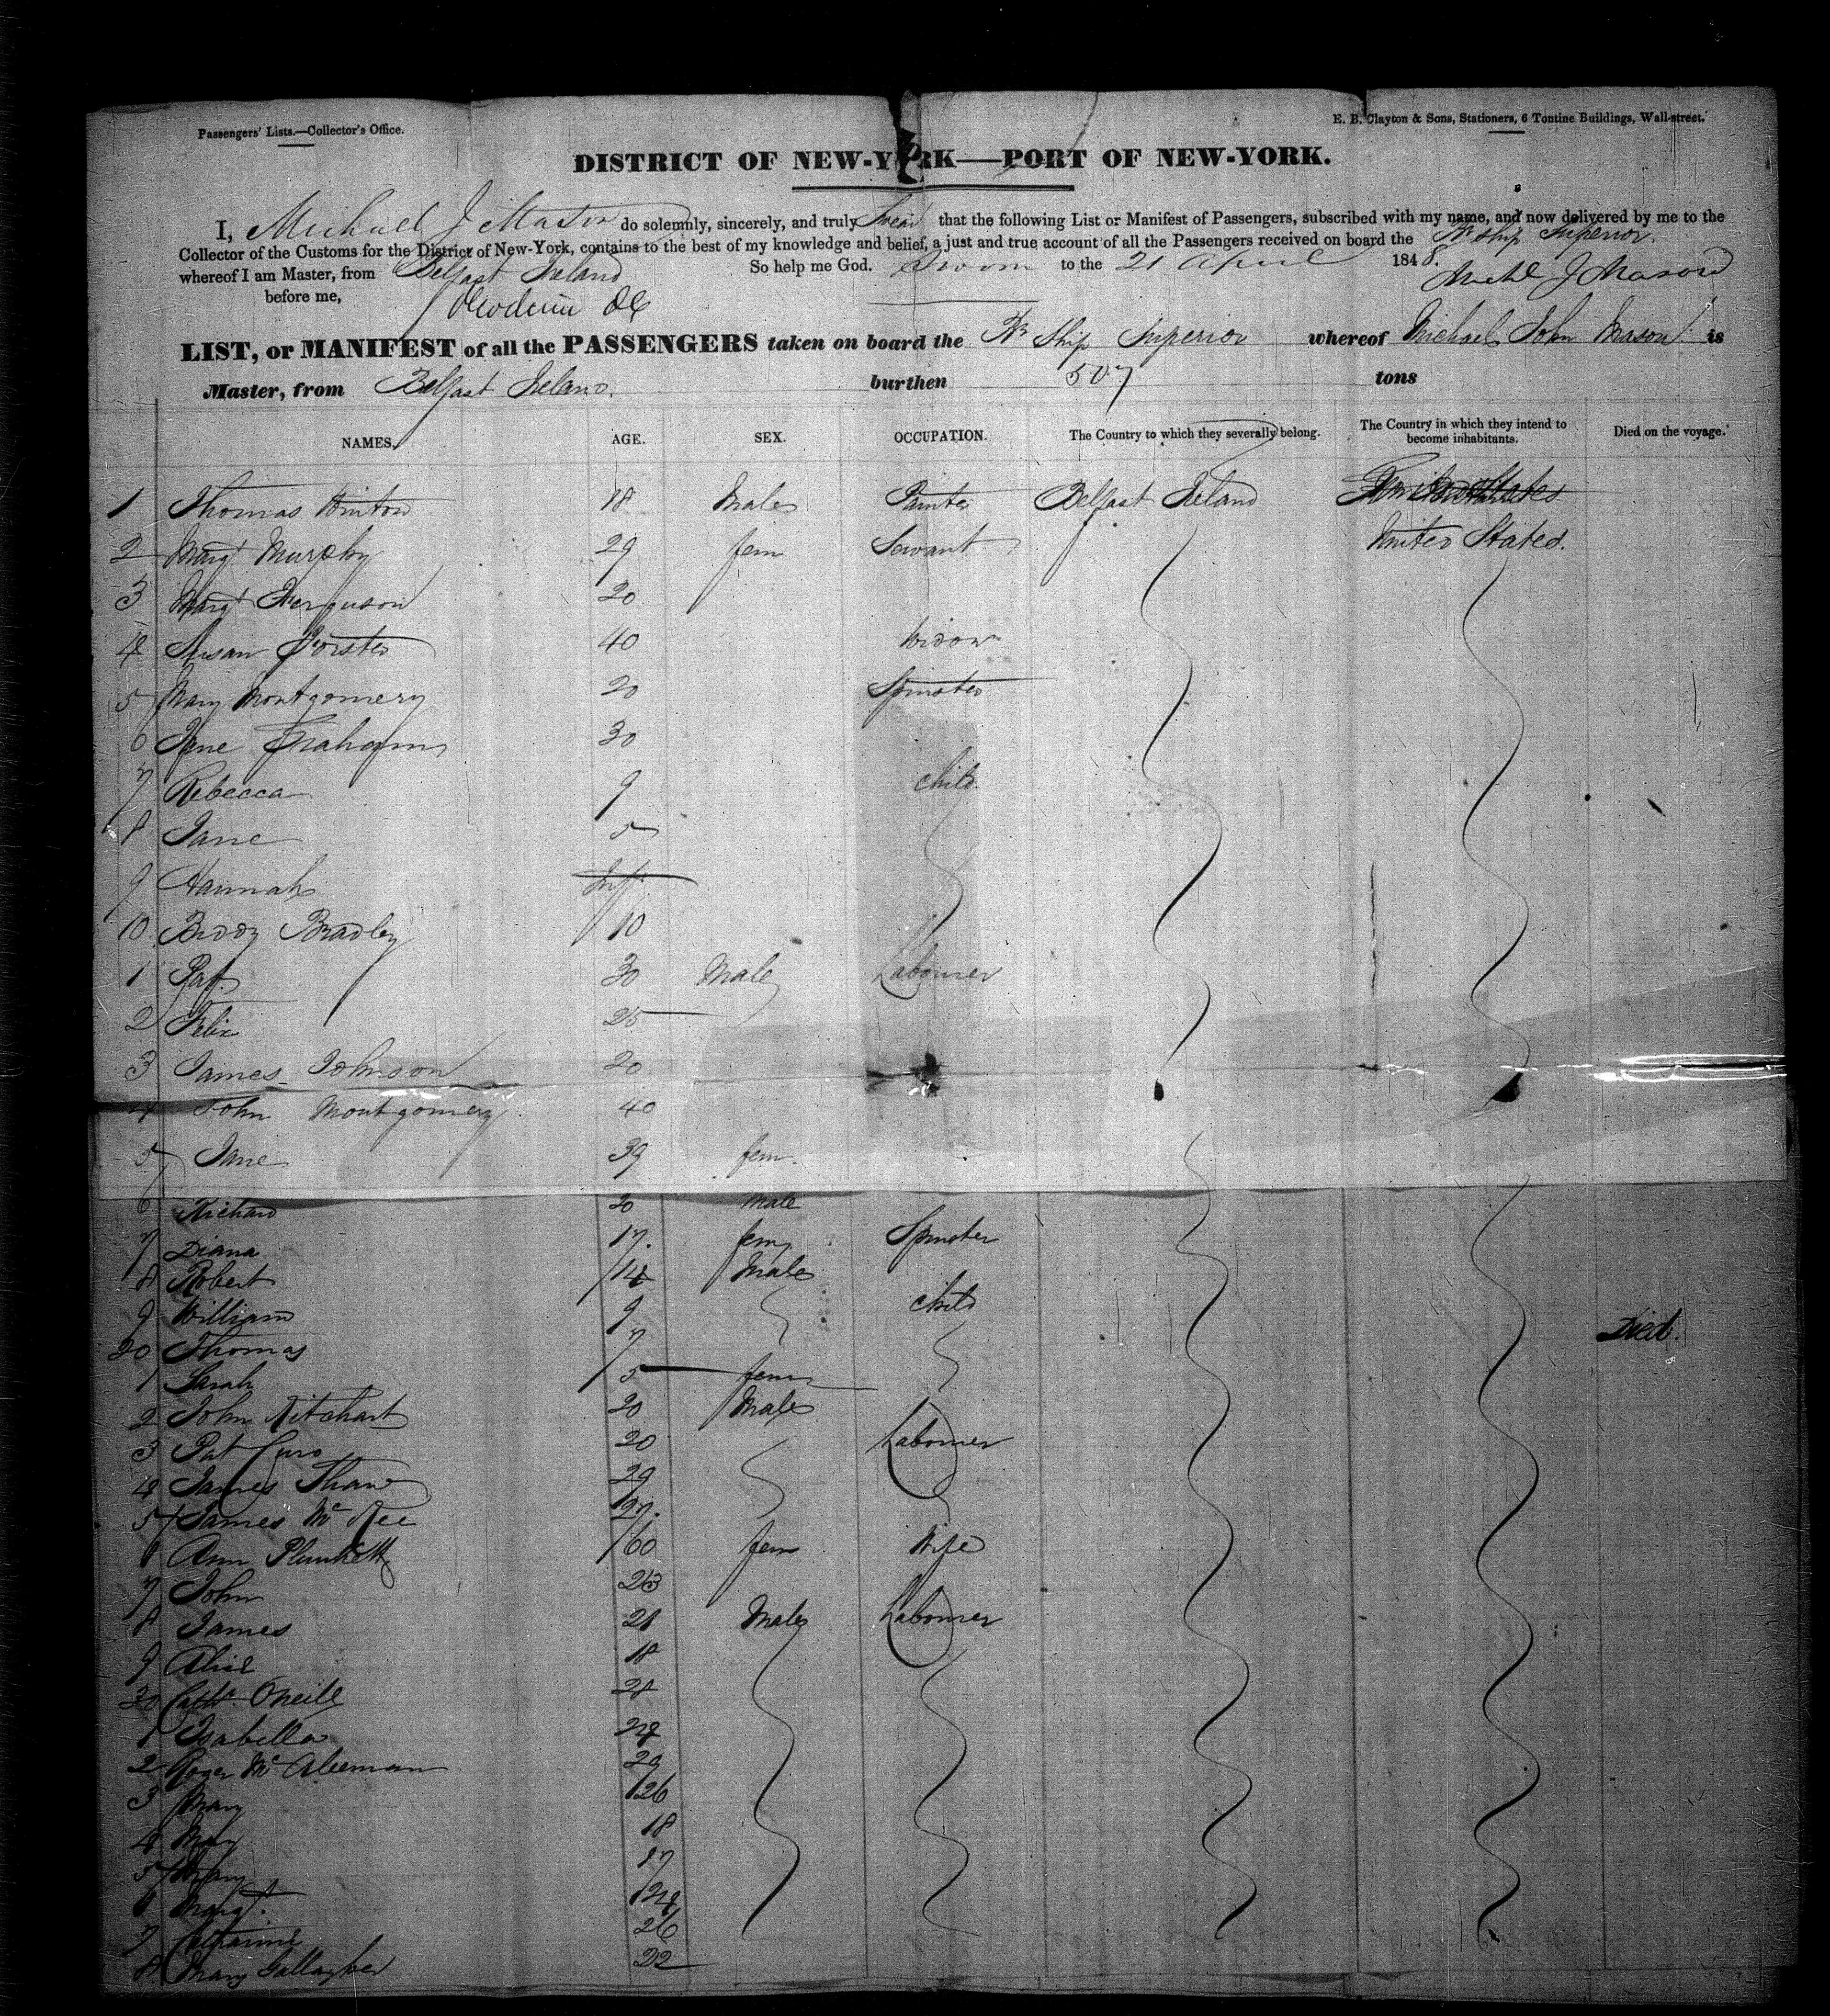 Passengers' Lists.—Collector's Office.
E. B. Clayton & Sons, Stationers, 6 Tontine Buildings, Wall-street.
DISTRICT OF NEW-YORK—PORT OF NEW-YORK.
I, Michael J Mason do solemnly, sincerely, and truly Swear that the following List or Manifest of Passengers, subscribed with my name, and now delivered by me to the
Collector of the Customs for the District of New-York, contains to the best of my knowledge and belief, a just and true account of all the Passengers received on board the Br Ship Superior.
whereof I am Master, from Belfast Ireland So help me God. Sworn to the 21 April 1848.
before me, Michl J Mason
LIST, or MANIFEST of all the PASSENGERS taken on board the Br Ship Superior whereof Michael John Mason is
Master, from Belfast Ireland. burthen 507 tons
NAMES. AGE. SEX. OCCUPATION. The Country to which they severally belong. The Country in which they intend to become inhabitants. Died on the voyage.
1 Thomas 18 Male Painter Belfast Ireland
2 Margt Murphy 29 fem Servant United States.
3 Margt Ferguson 20
4 Susan Forster 40 Widow
5 Mary Montgomery 20 Spinster
6 Jane Graham 30
7 Rebecca 9 Child
8 Jane 5
9 Hannah Inft
10 Biddy Bradley 10
1 Pat 30 Male Labourer
2 Felix 25
3 James Johnson 20
4 John Montgomery 40
5 Jane 39 fem.
6 Richard 20 Male
7 Diana 17. fem Spinster
8 Robert 14 Male
9 William 9 Child
20 Thomas 7 Died.
1 Sarah 5 fem
2 John Ritchart 20 Male
3 Pat 20 Labourer
4 James Shaw 29
5 James McKee 27.
6 Ann Plunkett 60 fem Wife
7 John 23
8 James 21 Male Labourer
9 Alice 18
30 Cathe. Oneill 28
1 Isabella 24
2 Roger McAleeman 29
3 Mary 26
4 Mary 18
5 Mary 17
6 Margt. 24
7 Catharine 26
8 Mary Gallagher 22